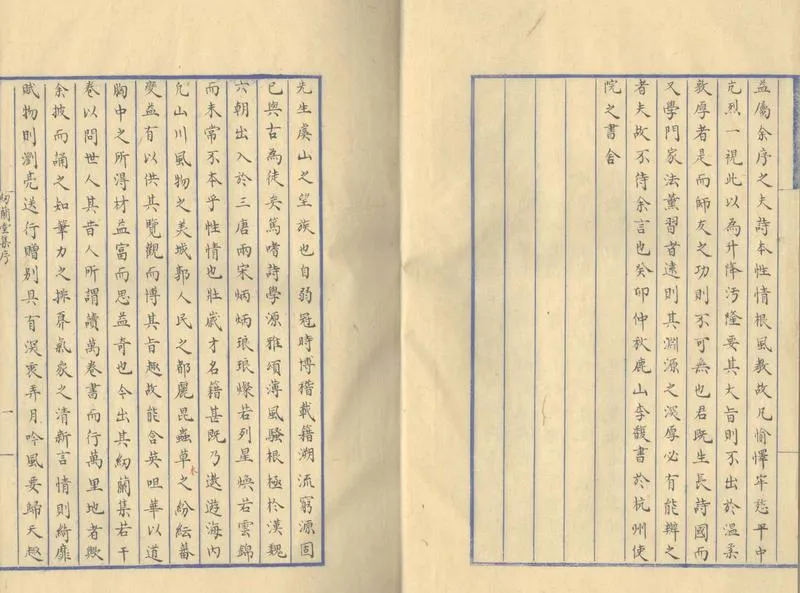 益屬余序之夫詩本性情根風教故凡愉懌牢愁平中
亢烈一視此以為升降汚隆要其大旨則不出於溫柔
敦厚者是而師友之功則不可無也君既生長詩國而
又學門家法薰習者遠則其淵源之深厚必有能辨之
者夫故不待余言也癸卯仲秋鹿山李馥書於杭州使
院之書舍
先生虞山之望族也自弱冠時博稽載籍溯流窮源固
已與古為徒矣篤嗜詩學源雅頌薄風騷根極於漢魏
六朝出入於三唐兩宋炳炳琅琅燦若列星煥若雲錦
而未常不本乎性情也壯歲才名籍甚既乃遨遊海內
凢山川風物之美城郭人民之都麗昆蟲草木之紛紜蕃
變益有以供其覽觀而博其旨趣故能含英咀華以道
胸中之所得材益富而思益奇也今出其紉蘭集若干
卷以問世人其昔人所謂讀萬卷書而行萬里地者歟
余披而誦之如筆力之排奡氣象之清新言情則綺靡
賦物則瀏亮送行贈別具有深衷弄月吟風要歸天趣
紉蘭堂集序 一